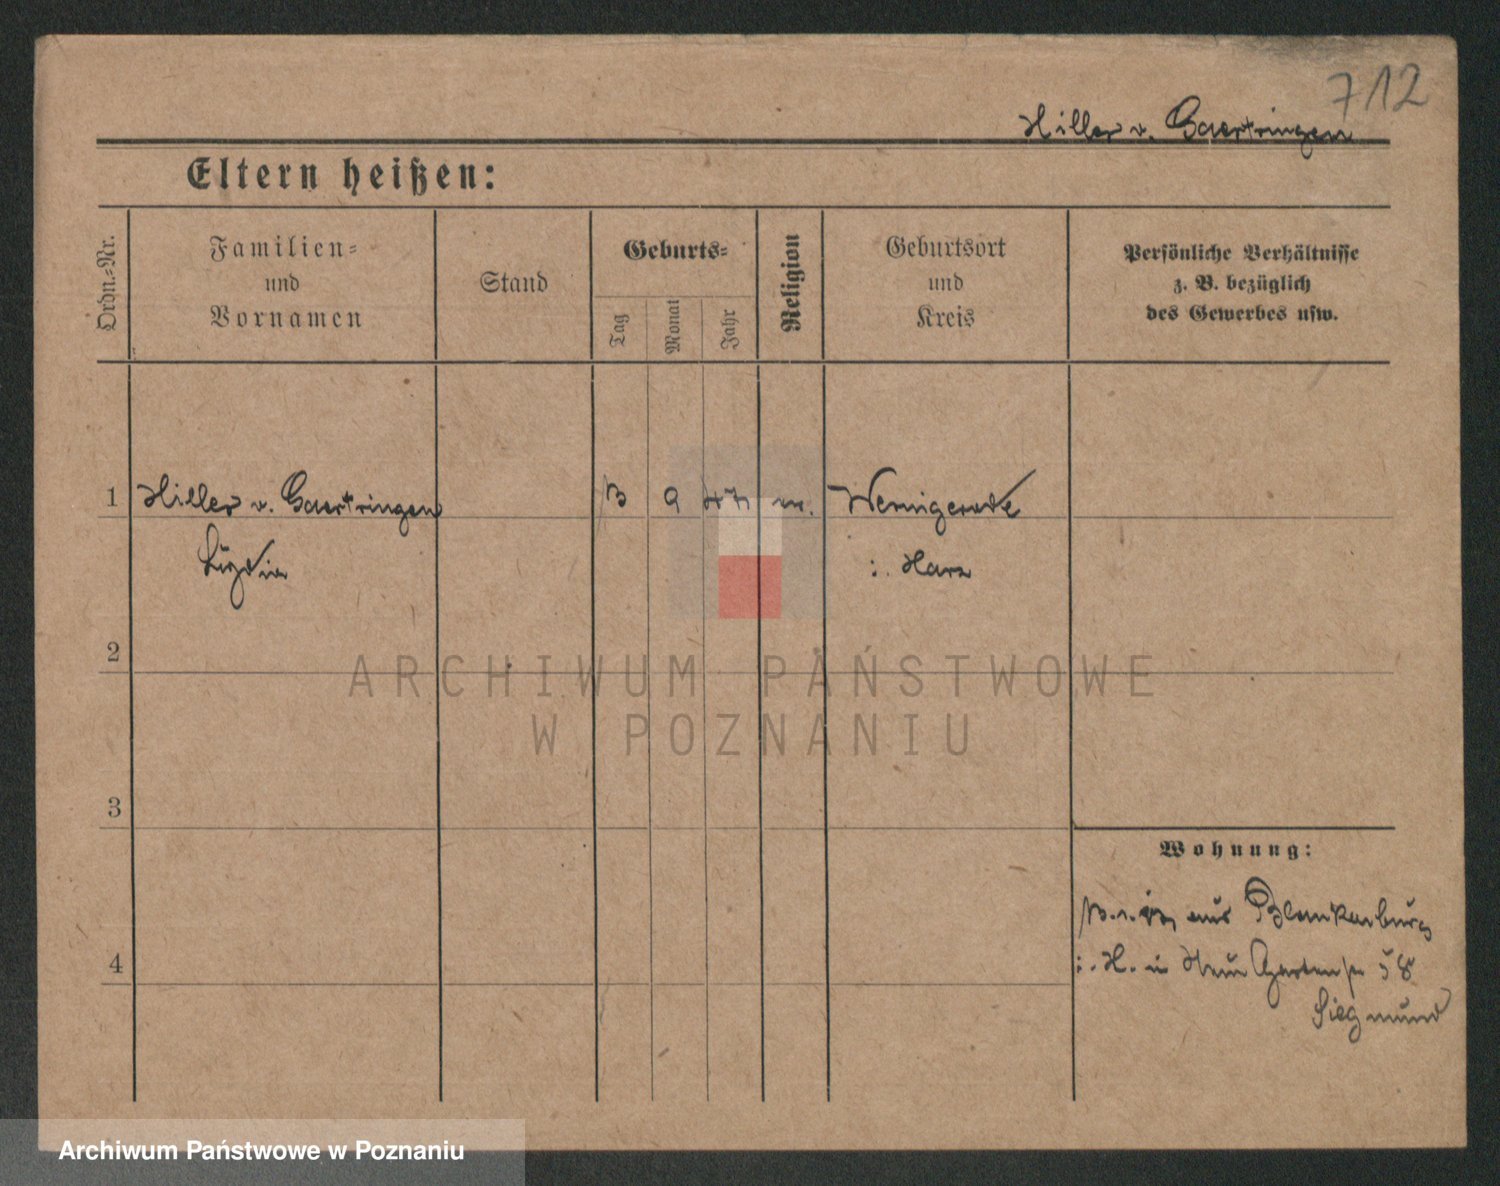 712
Hiller v. Gaertringen
Eltern heißen:
Ordn.-Nr.
Familien-
und
Vornamen
Stand
Geburts-
Tag
Monat
Jahr
Religion
Geburtsort
und
Kreis
Persönliche Verhältnisse
z. B. bezüglich
des Gewerbes usw.
1 Hiller v. Gaertringen 9 Wernigerode
i. Harz
2
ARCHIWUM PAŃSTWOWE
W POZNANIU
3
Wohnung:
aus Blankenburg
4
i. H. Gartenstr 58
Siegmund
Archiwum Państwowe w Poznaniu